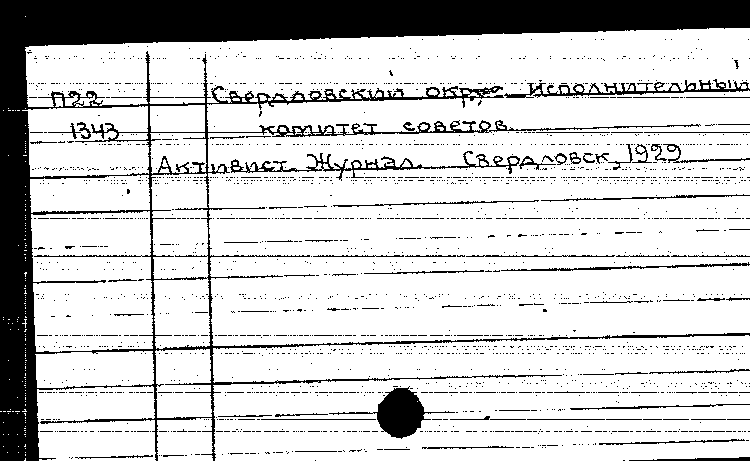 П22 Свердловский окр. исполнительный
1343 комитет советов.
Активист. Журнал. Свердловск, 1929